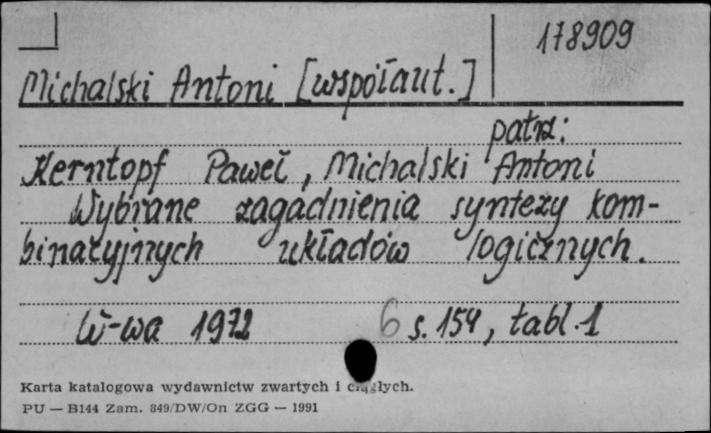 178909
Michalski Antoni [współaut.]
patrz:
Kerntopf Paweł, Michalski Antoni
Wybrane zagadnienia syntezy kom-
binacyjnych układów logicznych.
W-wa 1972 6 s. 154, tabl. 1
Karta katalogowa wydawnictw zwartych i ciągłych.
PU — B144 Zam. 849/DW/On ZGG — 1991